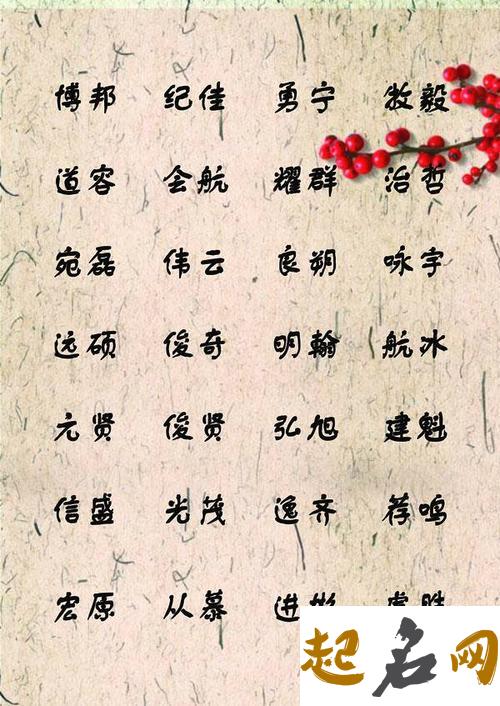 博邦 纪佳 勇宁 牧毅
道容 会航 耀群 治哲
宛磊 伟云 良朔 咏宇
远硕 俊奇 明翰 航冰
元贤 俊贤 弘旭 建魁
信盛 光茂 逸齐 荐鸣
宏原 从慕 进
起名网